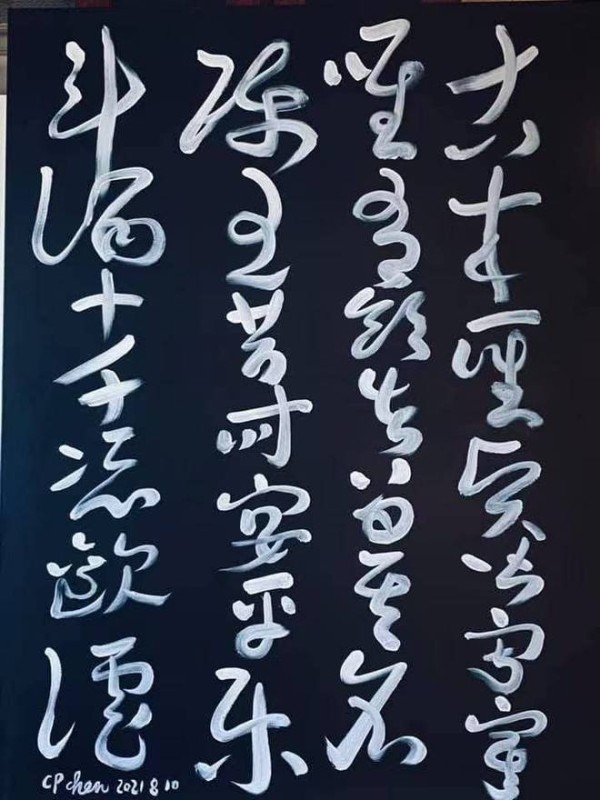 古来圣贤皆寂寞
唯有饮者留其名
陈王昔时宴平乐
斗酒十千恣欢谑
CP chen 2021 8 10